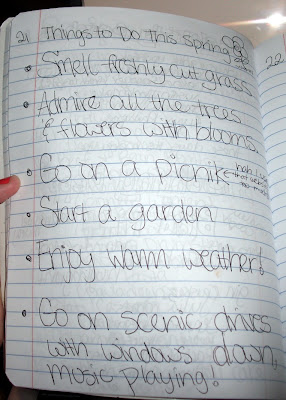 21 Things to Do This Spring
22
• Smell freshly cut grass
• Admire all the trees
& flowers with blooms.
• Go on a picnik
• Start a garden
• Enjoy warm weather!
• Go on scenic drives
with windows down,
music playing!